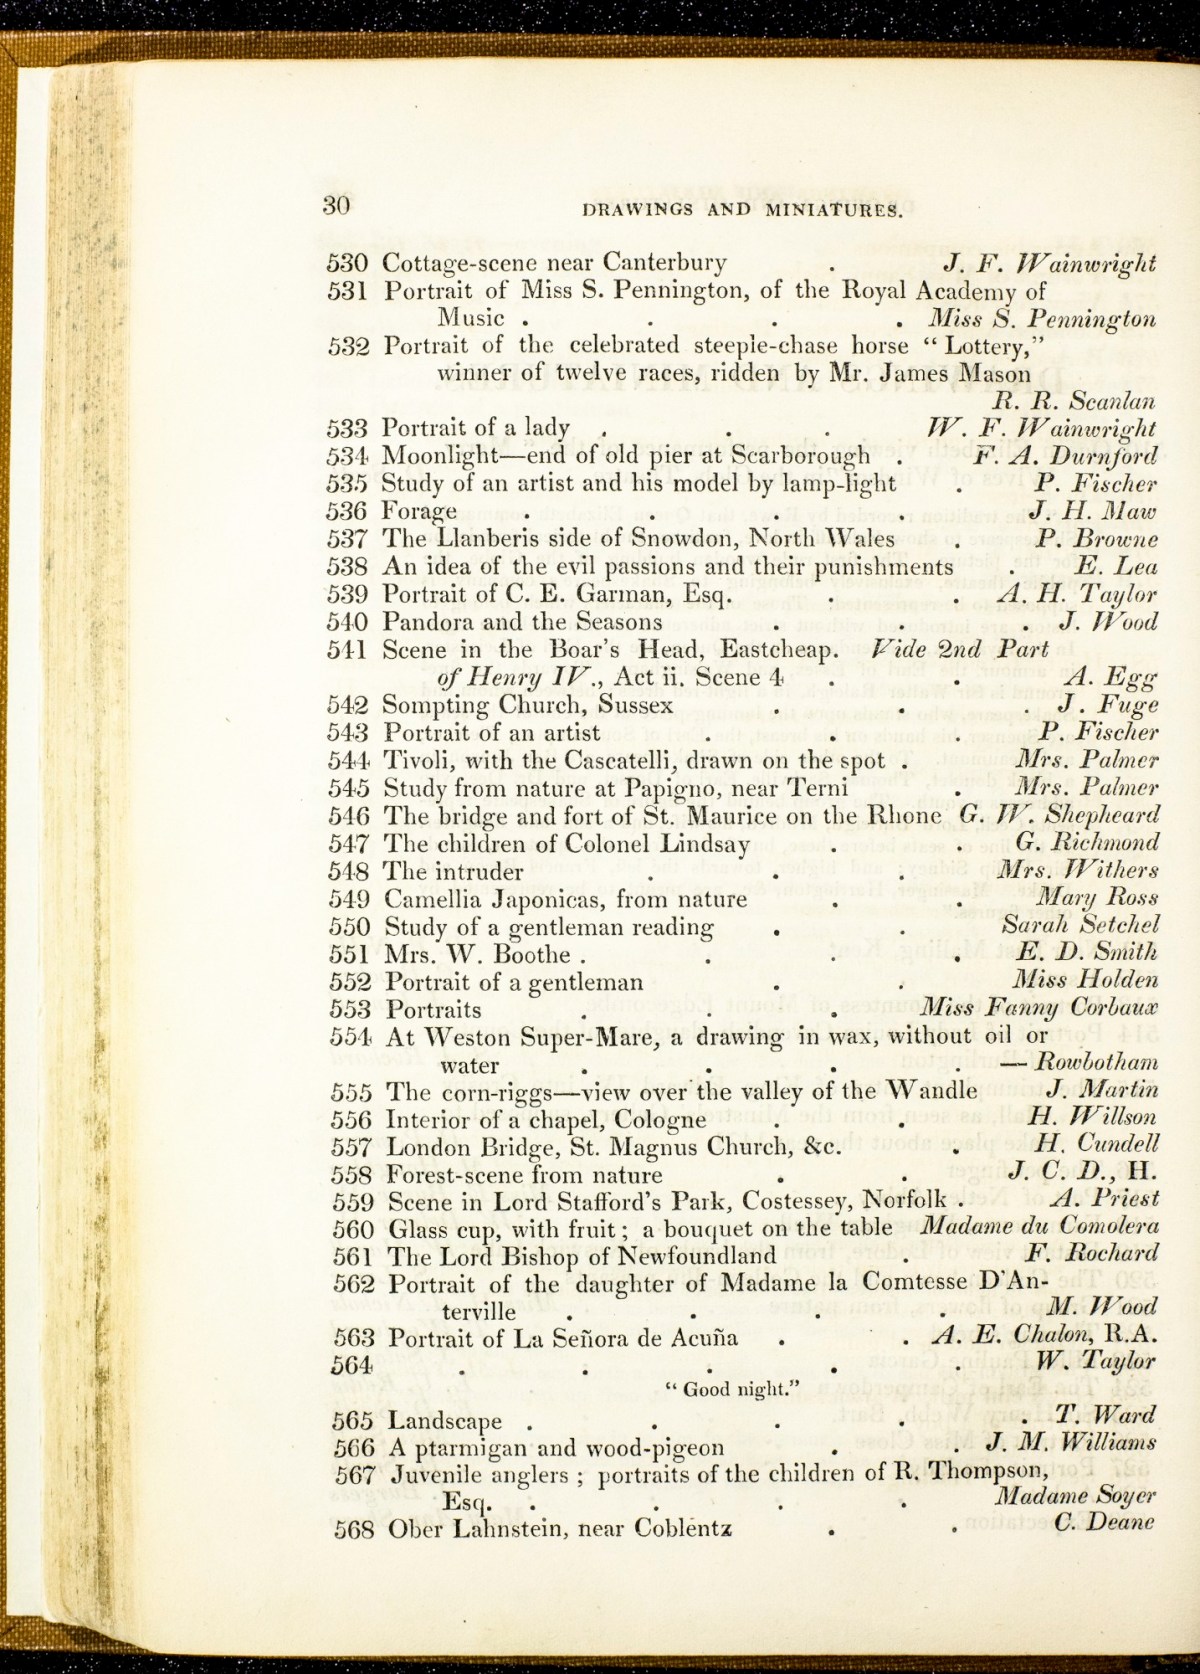 30 DRAWINGS AND MINIATURES.
530 Cottage-scene near Canterbury . J. F. Wainwright
531 Portrait of Miss S. Pennington, of the Royal Academy of
Music . . . . Miss S. Pennington
532 Portrait of the celebrated steeple-chase horse “ Lottery,”
winner of twelve races, ridden by Mr. James Mason
R. R. Scanlan
533 Portrait of a lady . . . W. F. Wainwright
534 Moonlight—end of old pier at Scarborough . F. A. Durnford
535 Study of an artist and his model by lamp-light . P. Fischer
536 Forage . . . . J. H. Maw
537 The Llanberis side of Snowdon, North Wales . P. Browne
538 An idea of the evil passions and their punishments . E. Lea
539 Portrait of C. E. Garman, Esq. . . A. H. Taylor
540 Pandora and the Seasons . . . J. Wood
541 Scene in the Boar’s Head, Eastcheap. Vide 2nd Part
of Henry IV., Act ii. Scene 4 . . A. Egg
542 Sompting Church, Sussex . . . J. Fuge
543 Portrait of an artist . . . P. Fischer
544 Tivoli, with the Cascatelli, drawn on the spot . Mrs. Palmer
545 Study from nature at Papigno, near Terni . Mrs. Palmer
546 The bridge and fort of St. Maurice on the Rhone G. W. Shepheard
547 The children of Colonel Lindsay . . G. Richmond
548 The intruder . . . Mrs. Withers
549 Camellia Japonicas, from nature . . Mary Ross
550 Study of a gentleman reading . . Sarah Setchel
551 Mrs. W. Boothe . . . . E. D. Smith
552 Portrait of a gentleman . . Miss Holden
553 Portraits . . . Miss Fanny Corbaux
554 At Weston Super-Mare, a drawing in wax, without oil or
water . . . . — Rowbotham
555 The corn-riggs—view over the valley of the Wandle J. Martin
556 Interior of a chapel, Cologne . . H. Willson
557 London Bridge, St. Magnus Church, &c. . H. Cundell
558 Forest-scene from nature . . J. C. D., H.
559 Scene in Lord Stafford’s Park, Costessey, Norfolk . A. Priest
560 Glass cup, with fruit ; a bouquet on the table Madame du Comolera
561 The Lord Bishop of Newfoundland . F. Rochard
562 Portrait of the daughter of Madame la Comtesse D’An-
terville . . . . M. Wood
563 Portrait of La Señora de Acuña . . A. E. Chalon, R.A.
564 . . . . . W. Taylor
“ Good night.”
565 Landscape . . . . . T. Ward
566 A ptarmigan and wood-pigeon . . J. M. Williams
567 Juvenile anglers ; portraits of the children of R. Thompson,
Esq. . . . . Madame Soyer
568 Ober Lahnstein, near Coblentz . . C. Deane